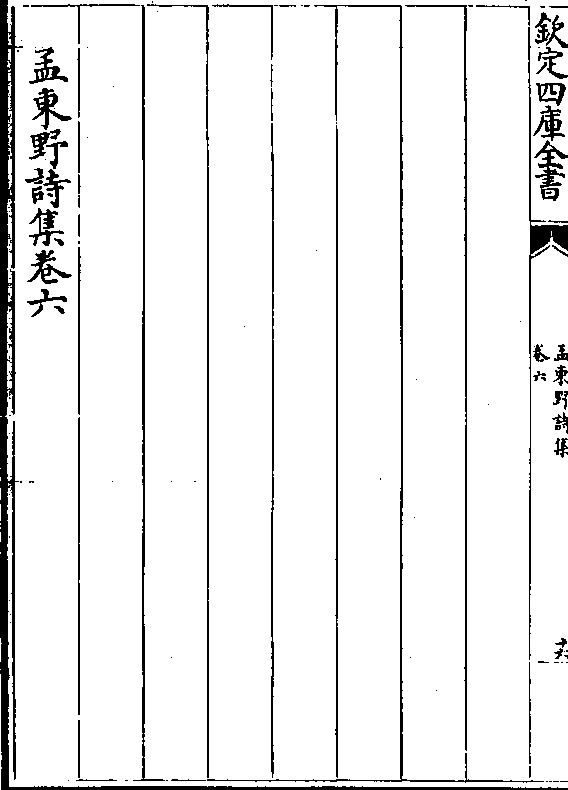 欽定四庫全書
孟東野詩集
卷六
十六
孟東野詩集卷六